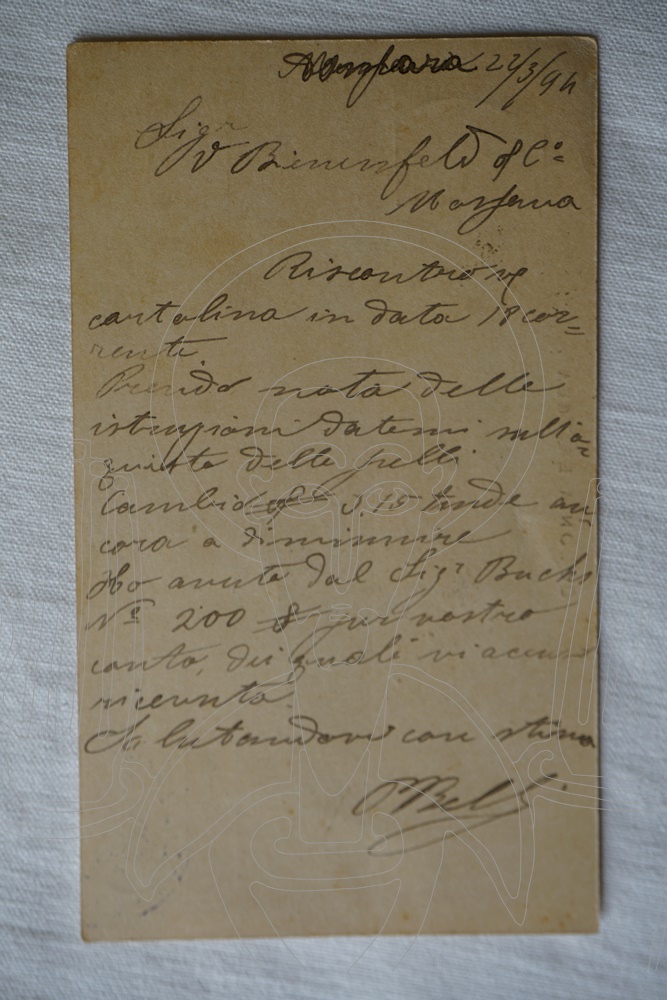 22/3/94
Sigr
V Bienenfeld & Co
Massaua
Riscontro vs
cartolina in data 18 cor=
rente
Prendo nota delle
istruzioni datemi sull'a=
quisto delle pelli
Cambio 3,15 tende an
cora a diminuire
Ho avuto dal Sigr Buchs
No 200 per vostro
conto, dei quali vi accuso
ricevuta.
Salutandovi con stima